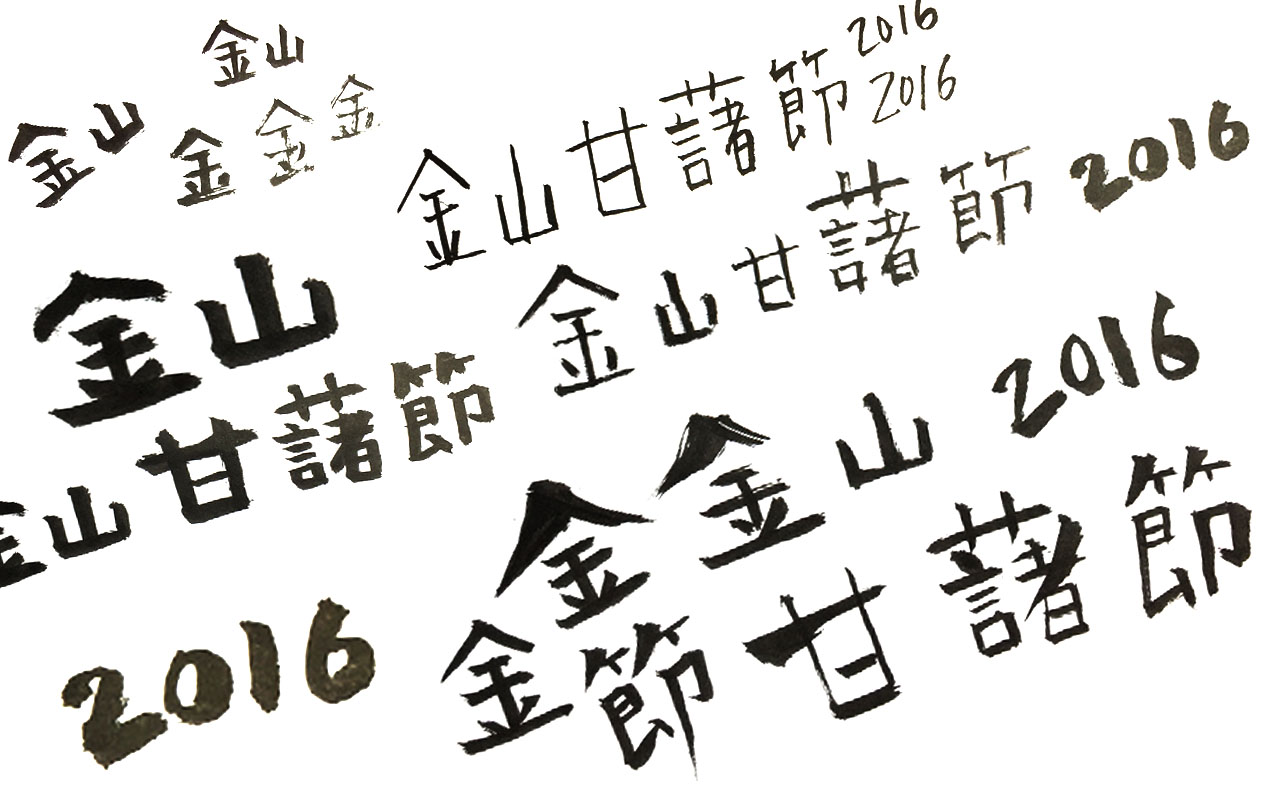 金山
金山
金金金
金山甘藷節 2016
2016
金山甘藷節 2016
金山
金山甘藷節
金山 2016
金
金節甘藷節
2016